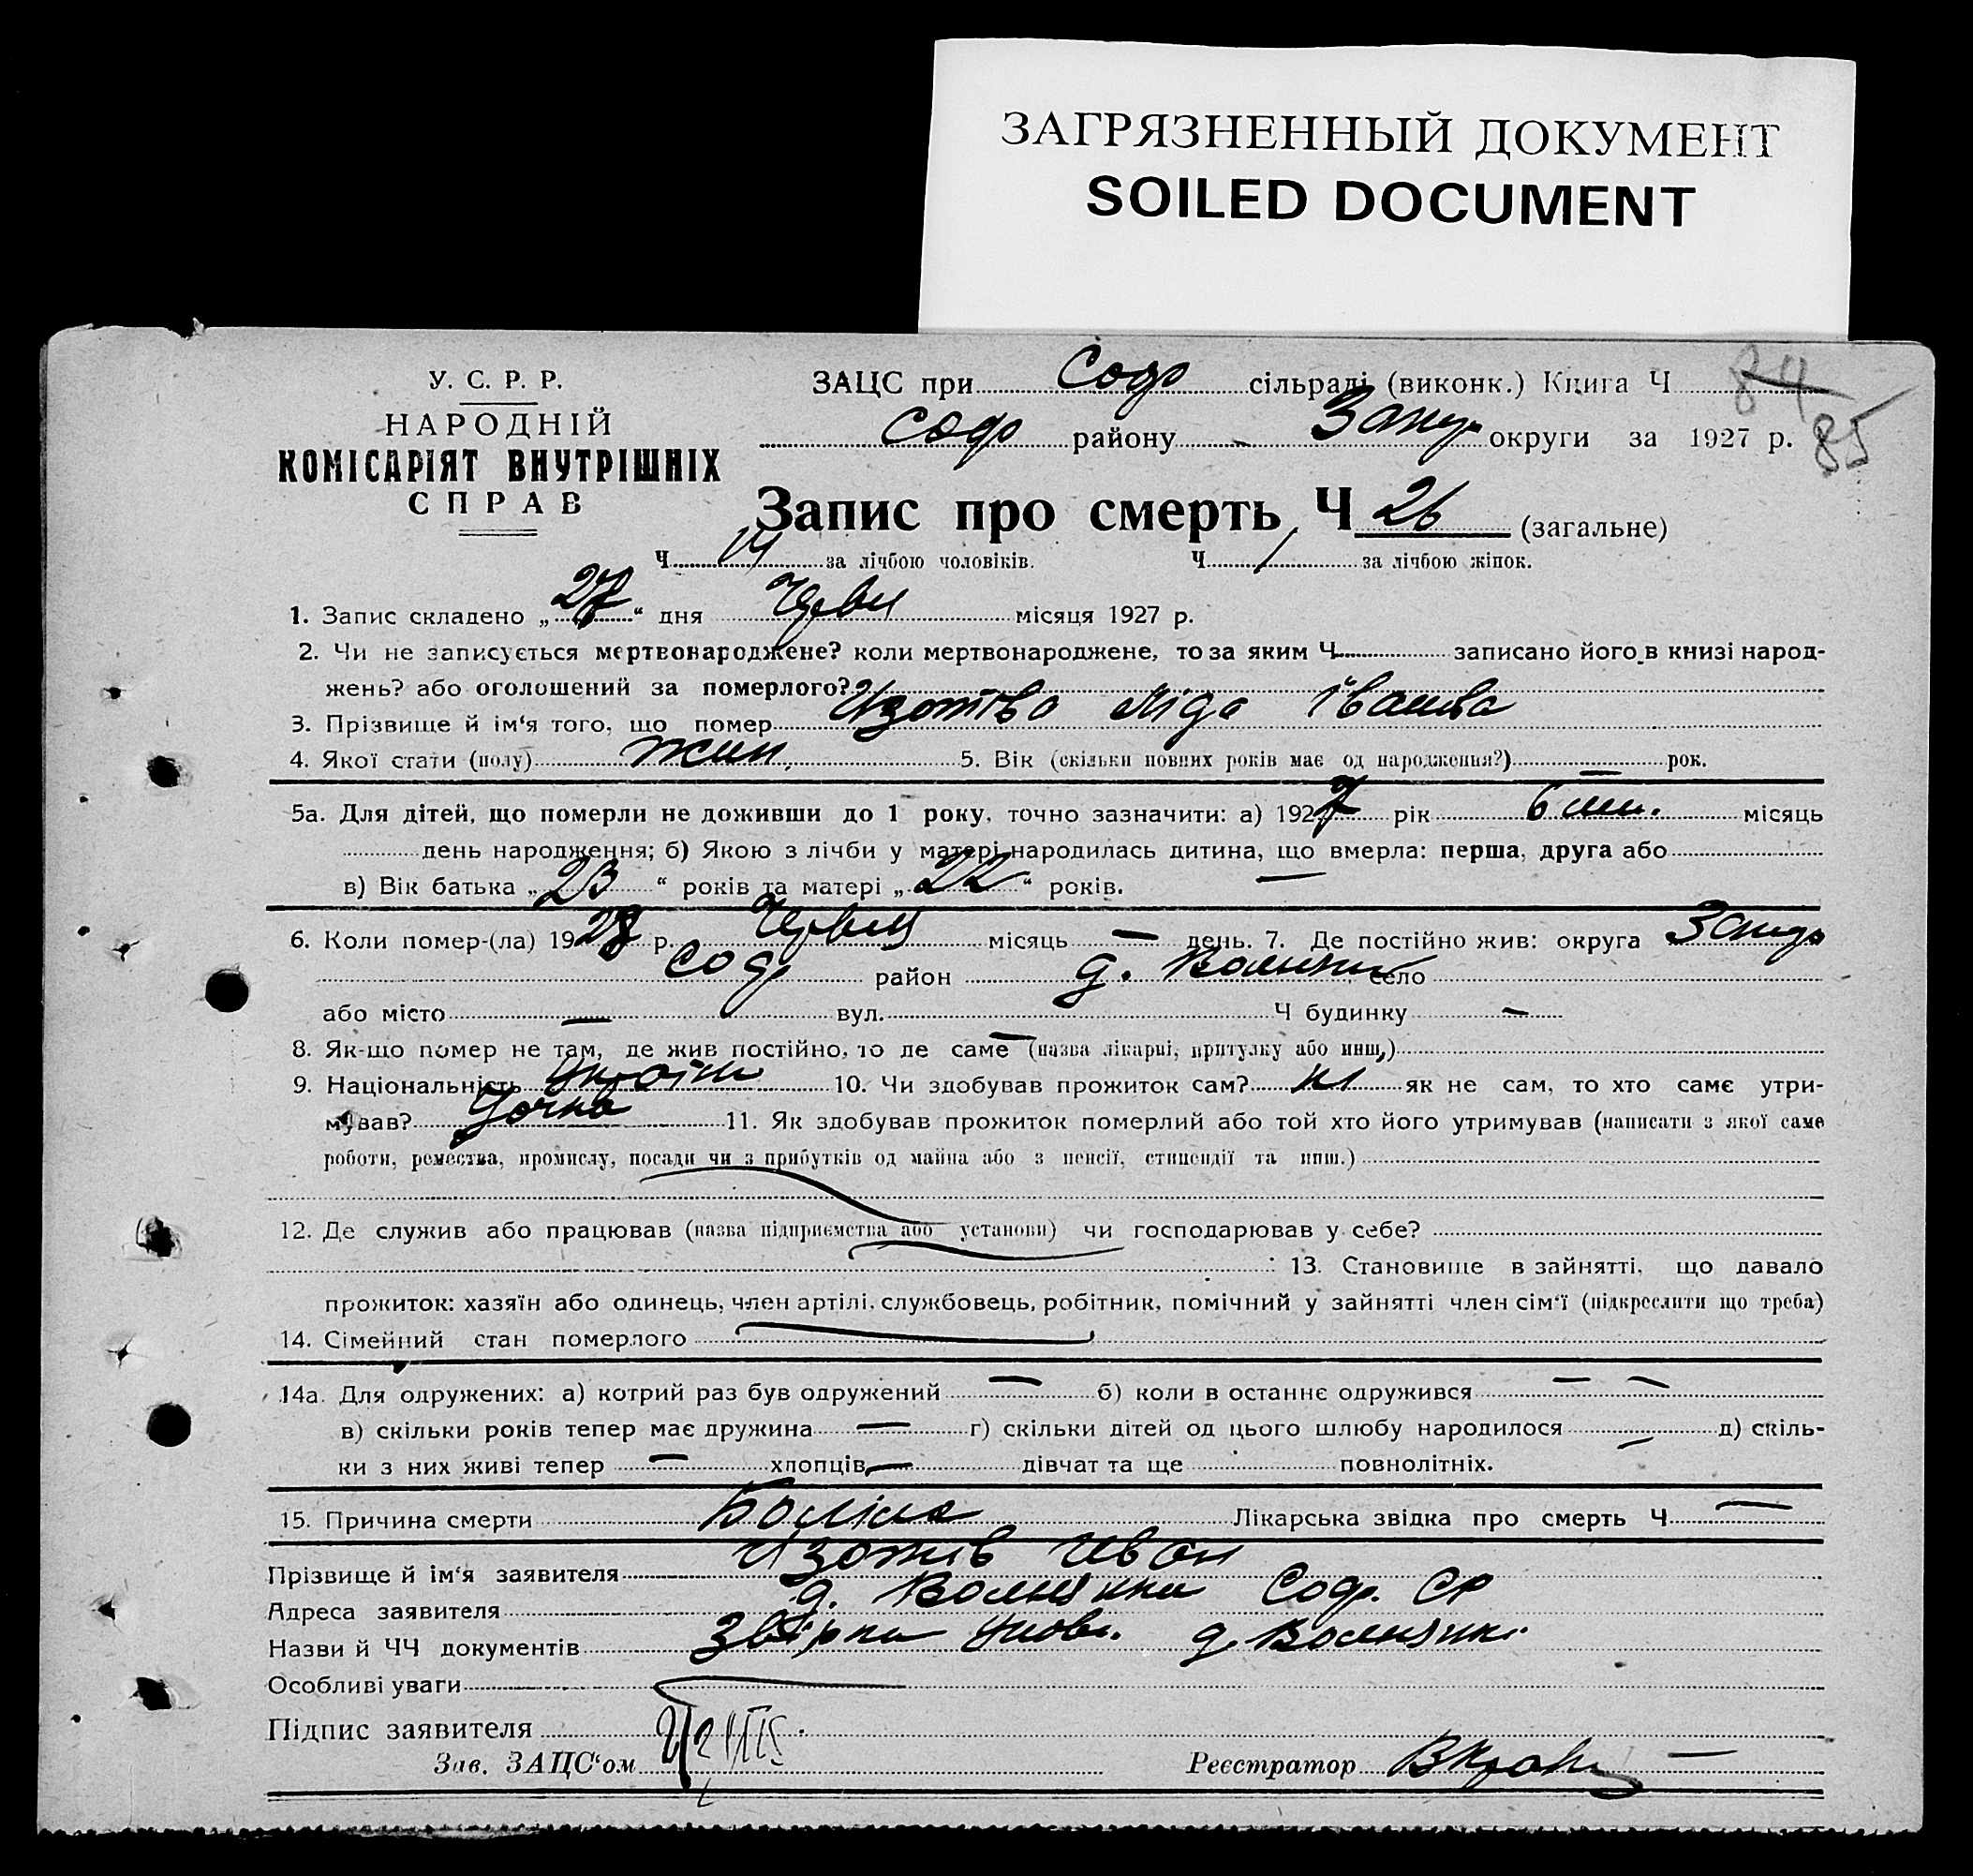 ЗАГРЯЗНЕННЫЙ ДОКУМЕНТ
SOILED DOCUMENT
У. С. Р. Р.
НАРОДНІЙ
КОМІСАРІЯТ ВНУТРІШНІХ
СПРАВ
ЗАЦС при Софр сільраді (виконк.) Книга Ч 84
Софр району округи за 1927 р. 85
Запис про смерть Ч 26 (загальне)
Ч за лічбою чоловіків. Ч за лічбою жінок.
1. Запис складено „27“ дня Червн місяця 1927 р.
2. Чи не записується мертвонароджене? коли мертвонароджене, то за яким Ч записано його в книзі народ-
жень? або оголошений за померлого?
3. Прізвище й ім'я того, що помер Ліда
4. Якої стати (полу) жин. 5. Вік (скільки повних років має од народження?) — рок.
5а. Для дітей, що померли не доживши до 1 року, точно зазначити: а) 1927 рік 6 місяць
день народження; б) Якою з лічби у матері народилась дитина, що вмерла: перша, друга або
в) Вік батька „23“ років та матері „22“ років.
6. Коли помер-(ла) 19 р. місяць — день. 7. Де постійно жив: округа
Соф район д. село
або місто — вул. Ч будинку —
8. Як-що помер не там, де жив постійно, то де саме (назва лікарні, притулку або инш.) —
9. Національність 10. Чи здобував прожиток сам? ні як не сам, то хто саме утри-
мував? 11. Як здобував прожиток померлий або той хто його утримував (написати з якої саме
роботи, ремества, промислу, посади чи з прибутків од майна або з пенсії, стипендії та инш.)
12. Де служив або працював (назва підприємства або установи) чи господарював у себе?
13. Становище в зайнятті, що давало
прожиток: хазяїн або одинець, член артілі, службовець, робітник, помічний у зайнятті член сім'ї (підкреслити що треба)
14. Сімейний стан померлого
14а. Для одружених: а) котрий раз був одружений — б) коли в останнє одружився — —
в) скільки років тепер має дружина — г) скільки дітей од цього шлюбу народилося — д) скіль-
ки з них живі тепер — хлопців — дівчат та ще повнолітніх.
15. Причина смерти Лікарська звідка про смерть Ч —
Прізвище й ім'я заявителя Иван
Адреса заявителя д. Софр. СР
Назви й ЧЧ документів д.
Особливі уваги
Підпис заявителя
Зав. ЗАЦС'ом Реєстратор